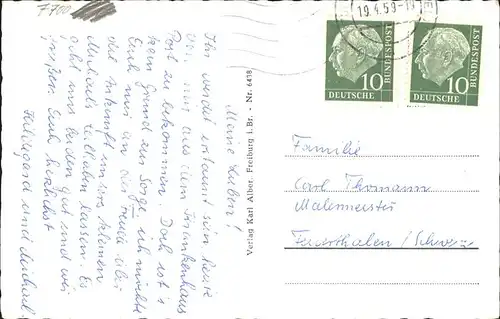 7700
19.4.59-19
10
DEUTSCHE
BUNDESPOST
10
DEUTSCHE
BUNDESPOST
Meine Lieben!
Ihr werdet erstaunt sein heute
von mir aus dem Krankenhaus
Post zu bekommen. Doch ist's
kein Grund zur Sorge ich möchte
Euch nur an der Freude über
die Ankunft unseres kleinen
Michaels teilhaben lassen. Es
geht uns beiden gut und wir
grüßen Euch herzlichst
Hildegard und Michael
Verlag Karl Alber, Freiburg i. Br. - Nr. 6418
Familie
Carl Thomann
Malermeister
Feuerthalen / Schweiz